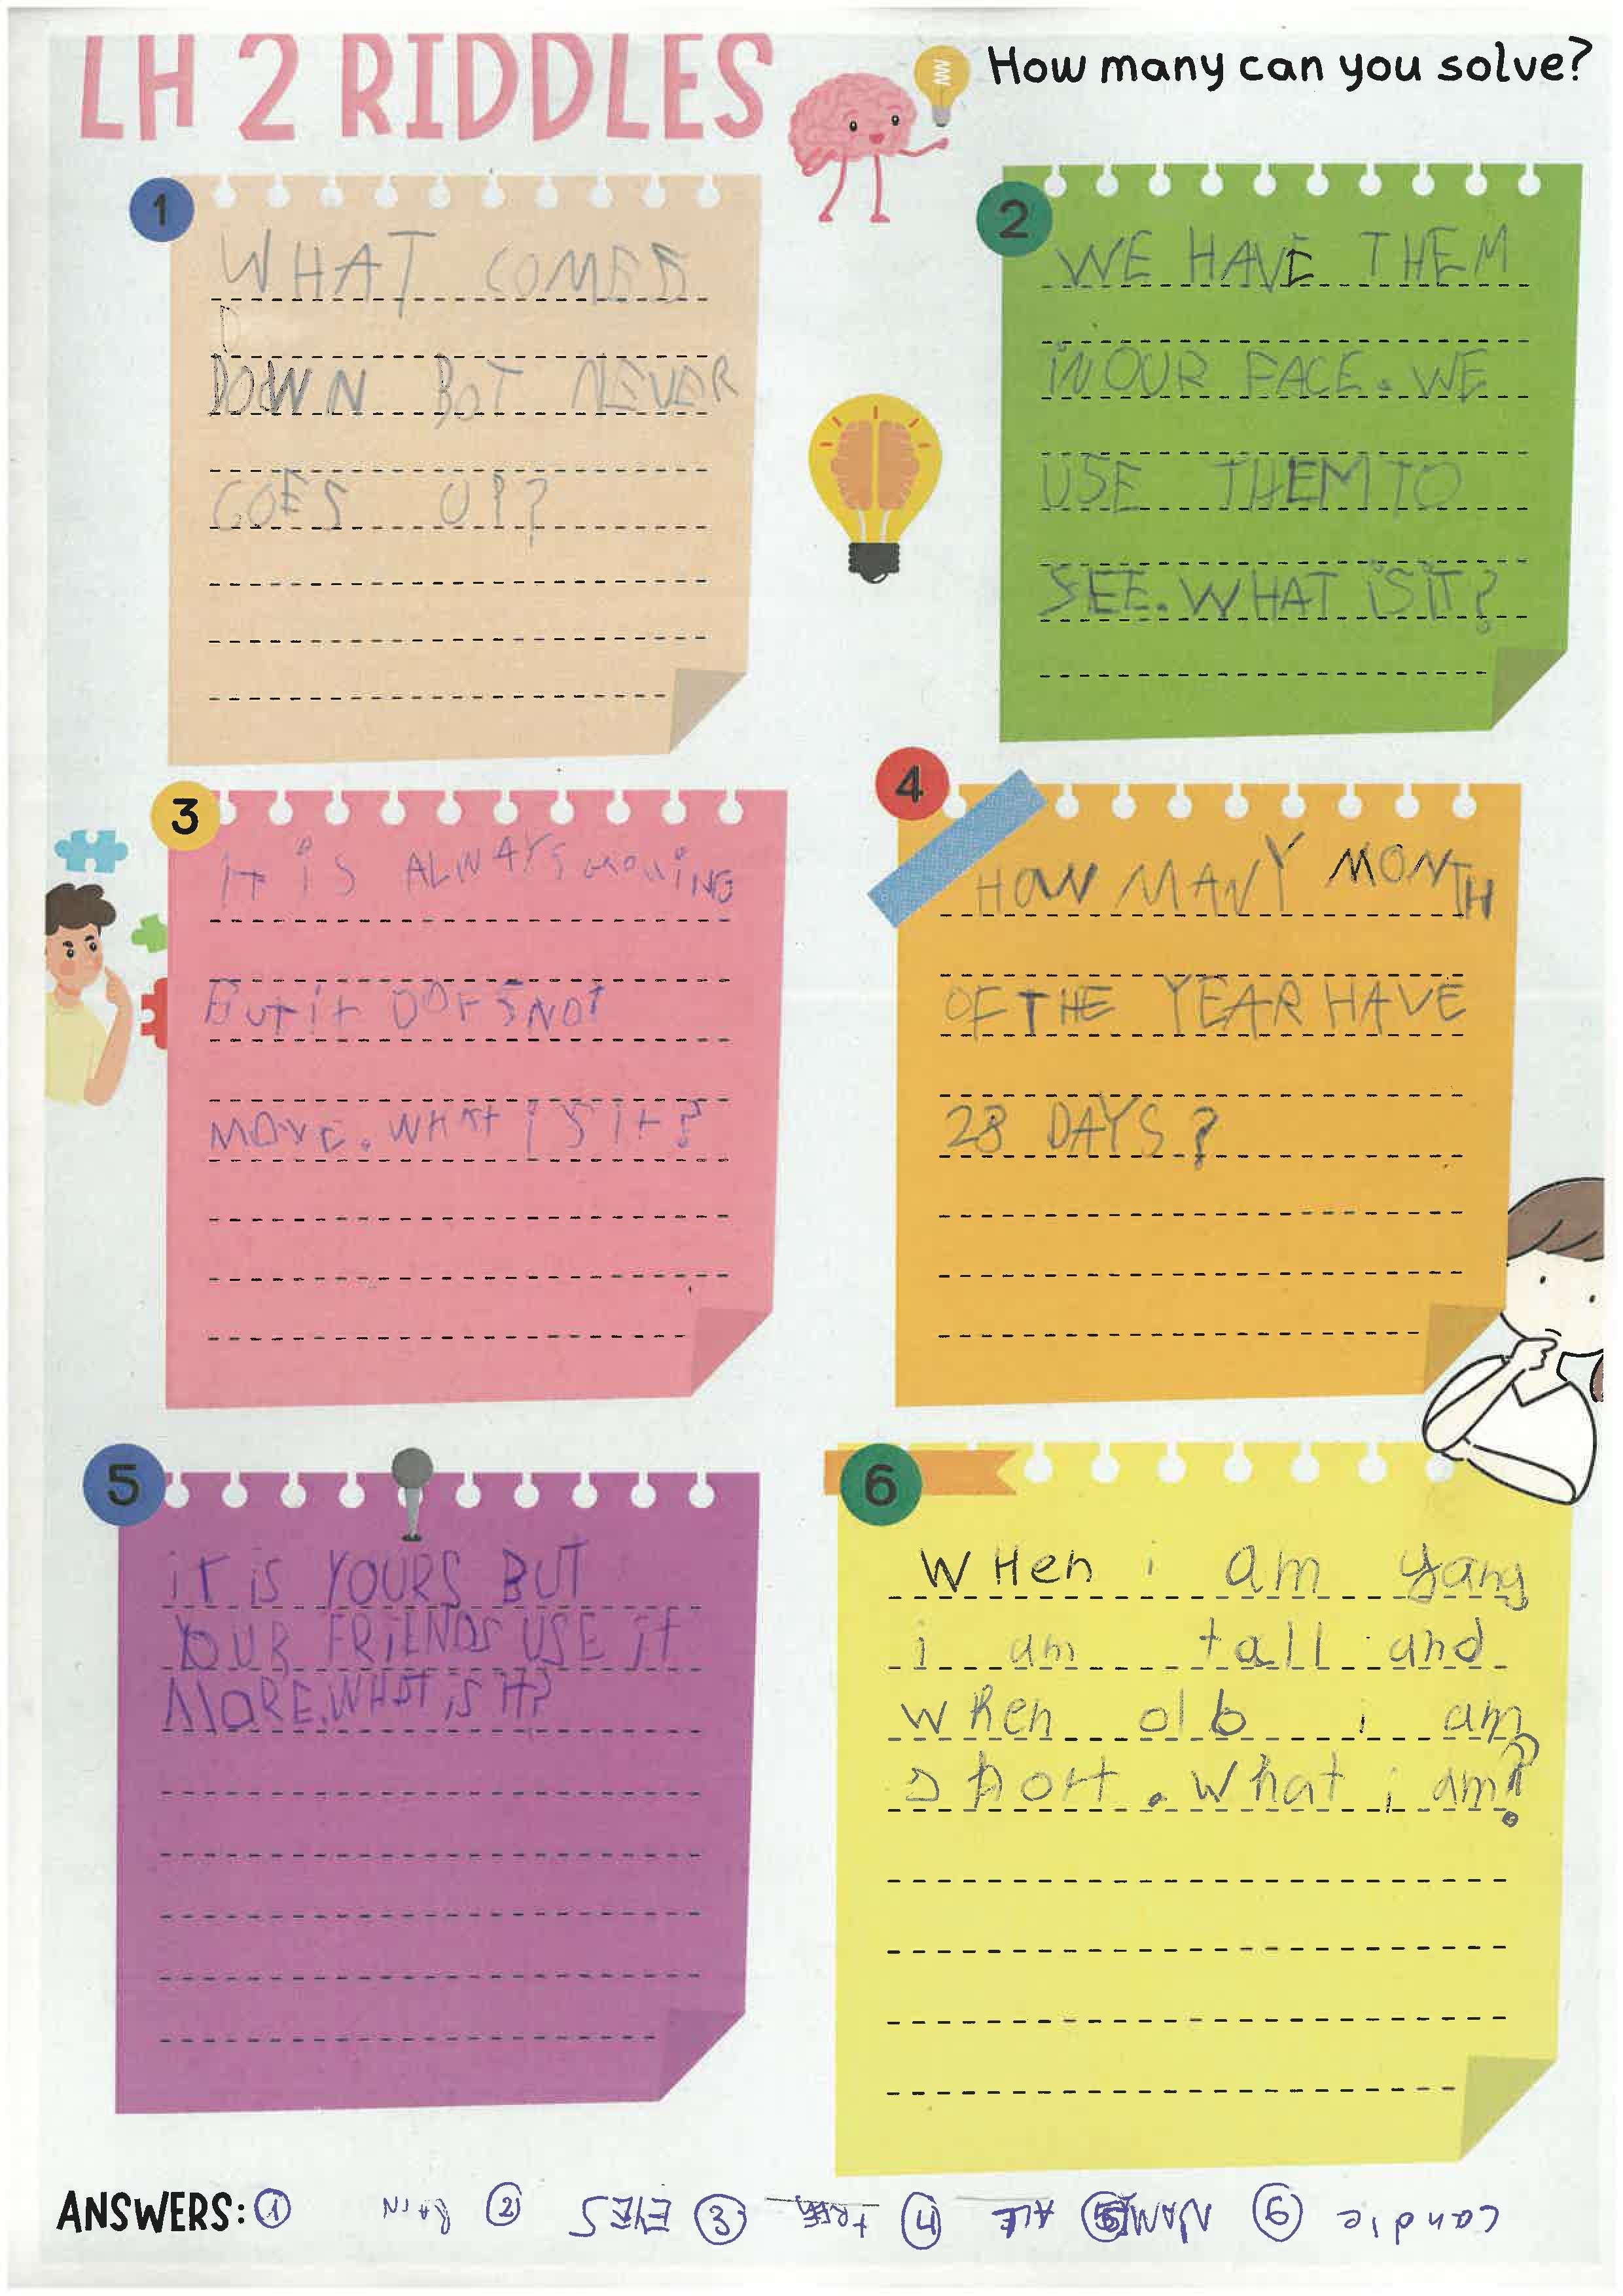 LH 2 RIDDLES
How many can you solve?
1
WHAT COMES
DOWN BOT NEVER
GOES UP?
2
WE HAVE THEM
IN OUR FACE. WE
USE THEM TO
SEE. WHAT IS IT?
3
IT IS ALWAYS MOVING
BUT IT DOESNOT
MOVE. WHAT IS IT?
4
HOW MANY MONTH
OF THE YEAR HAVE
28 DAYS?
5
IT IS YOURS BUT
YOUR FRIENDS USE IT
MORE. WHAT IS IT?
6
WHen i am yang
i am tall and
when olb i am
short. What i am?
ANSWERS: 1 2 EYES 3 4 5 NAME 6 candle